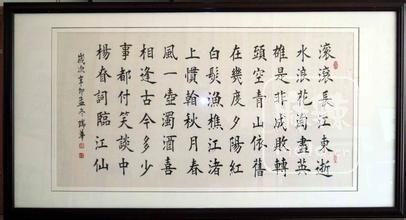 滚滚長江東逝
水浪花淘盡英
雄是非成敗轉
頭空青山依舊
在幾度夕陽紅
白髮漁樵江渚
上慣看秋月春
風一壺濁酒喜
相逢古今多少
事都付笑談中
楊眘詞臨江仙
歲次辛卯孟冬